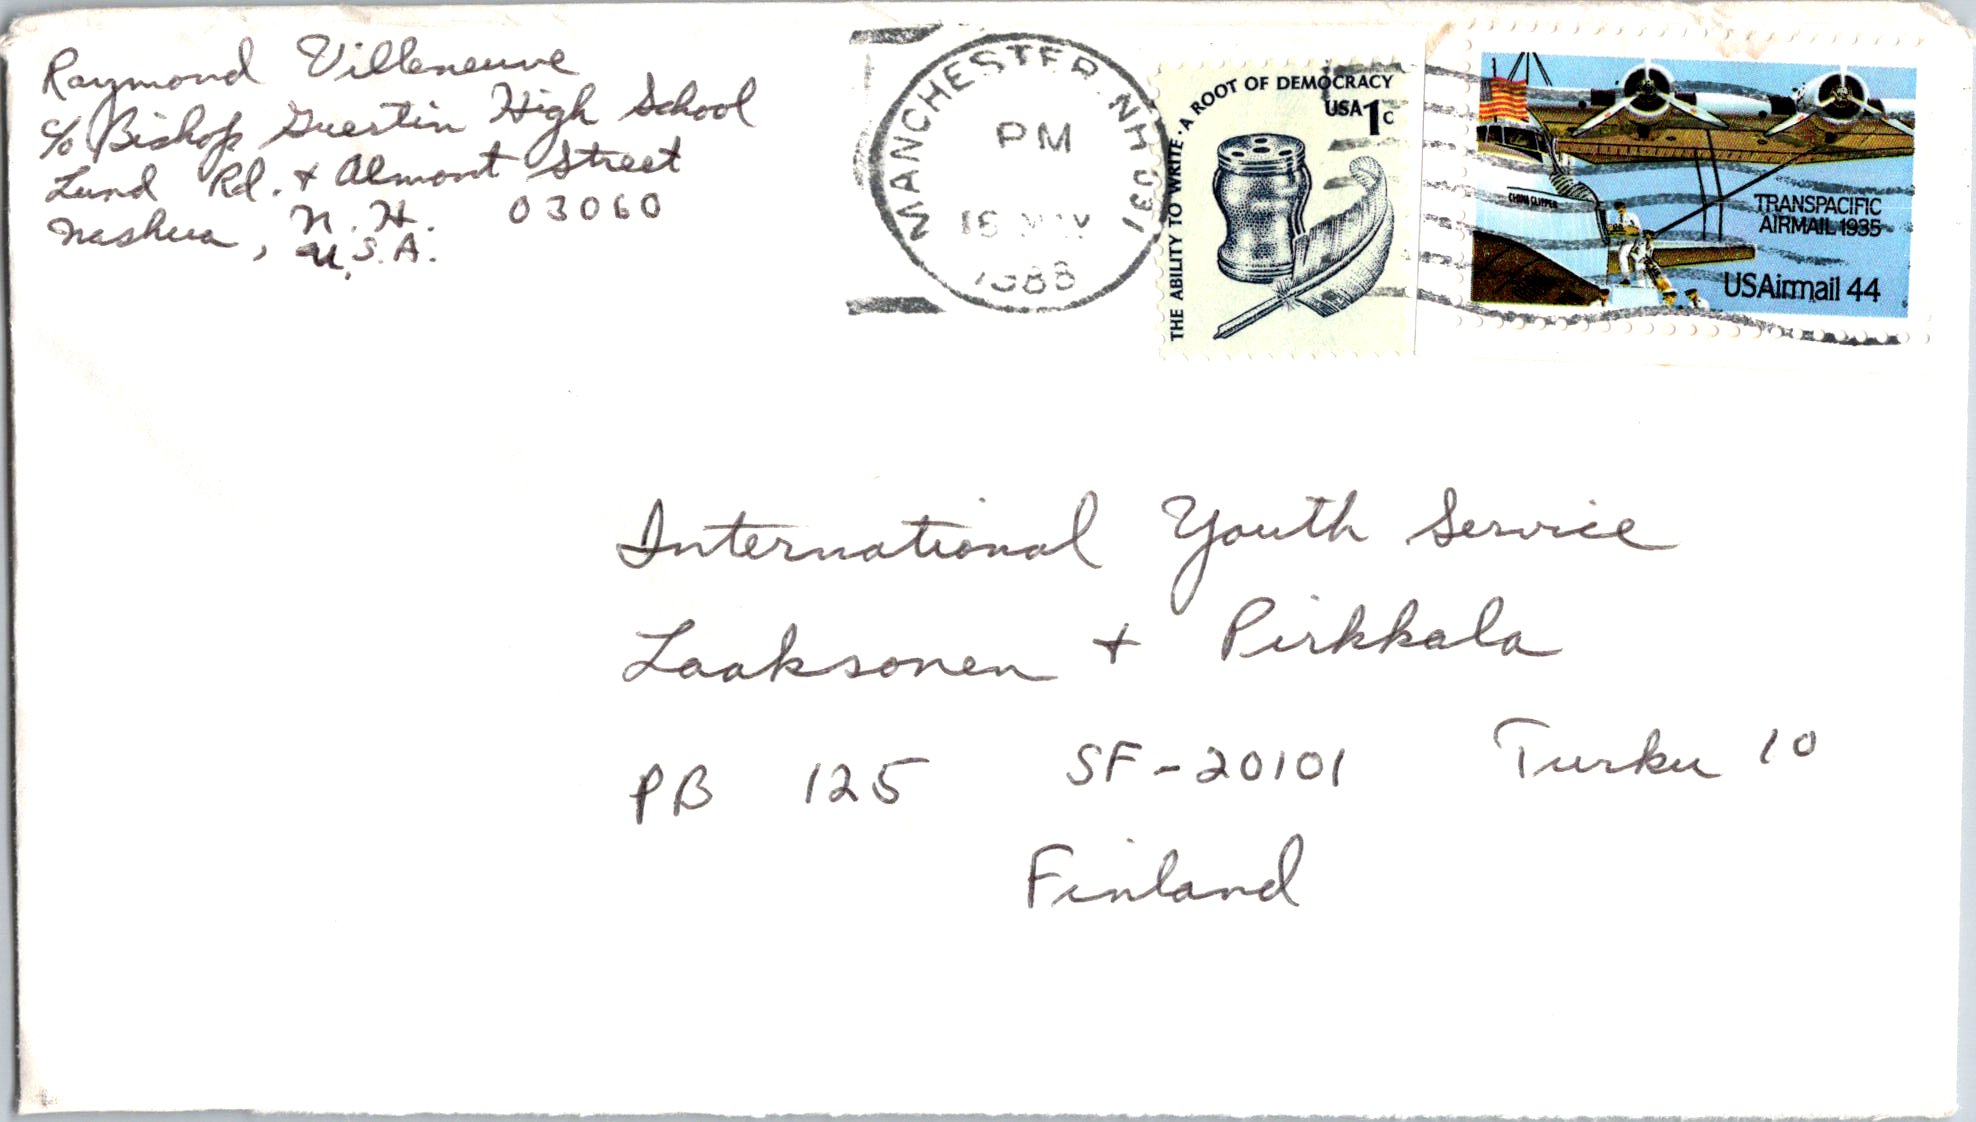 Raymond Villeneuve
c/o Bishop Guertin High School
Lund Rd. + Almont Street
Nashua, N.H. 03060
U.S.A.
MANCHESTER, NH 031
PM
1988
THE ABILITY TO WRITE · A ROOT OF DEMOCRACY
USA 1c
CHINA CLIPPER
TRANSPACIFIC
AIRMAIL 1935
USAirmail 44
International Youth Service
Laaksonen + Pirkkala
PB 125 SF-20101 Turku 10
Finland